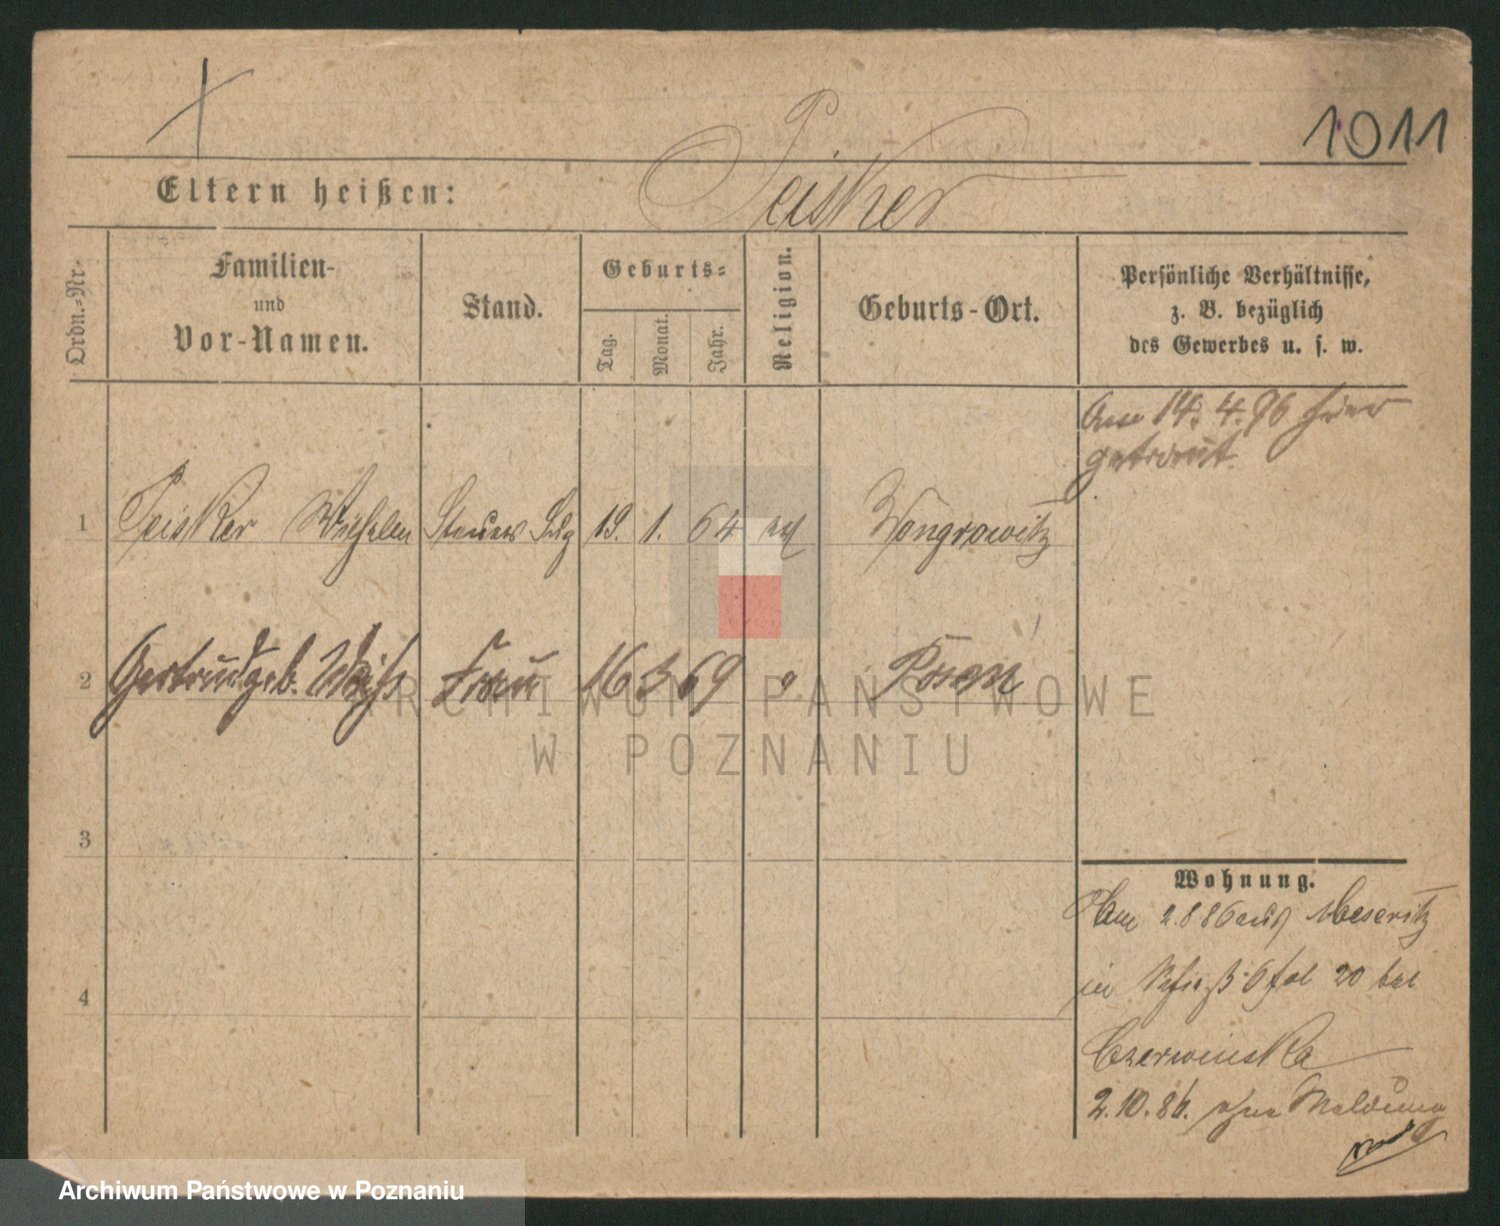 1011
Peisker
Eltern heißen:
Ordn.-Nr.
Familien-
und
Vor-Namen.
Stand.
Geburts-
Tag.
Monat.
Jahr.
Religion.
Geburts-Ort.
Persönliche Verhältnisse,
z. B. bezüglich
des Gewerbes u. s. w.
Am 14. 4. 96 hier
getraut.
1 Peisker Wilhelm Steuer 19. 1. 64 ev Wongrowitz
2 Gertrud geb. Weiss Frau 16 3 69 " Posen
3
4
Wohnung.
Am 2.8 86 aus Meseritz
in 20 bei
Czerwinska
2.10.86. ohne Meldung
ARCHIWUM PAŃSTWOWE
W POZNANIU
Archiwum Państwowe w Poznaniu